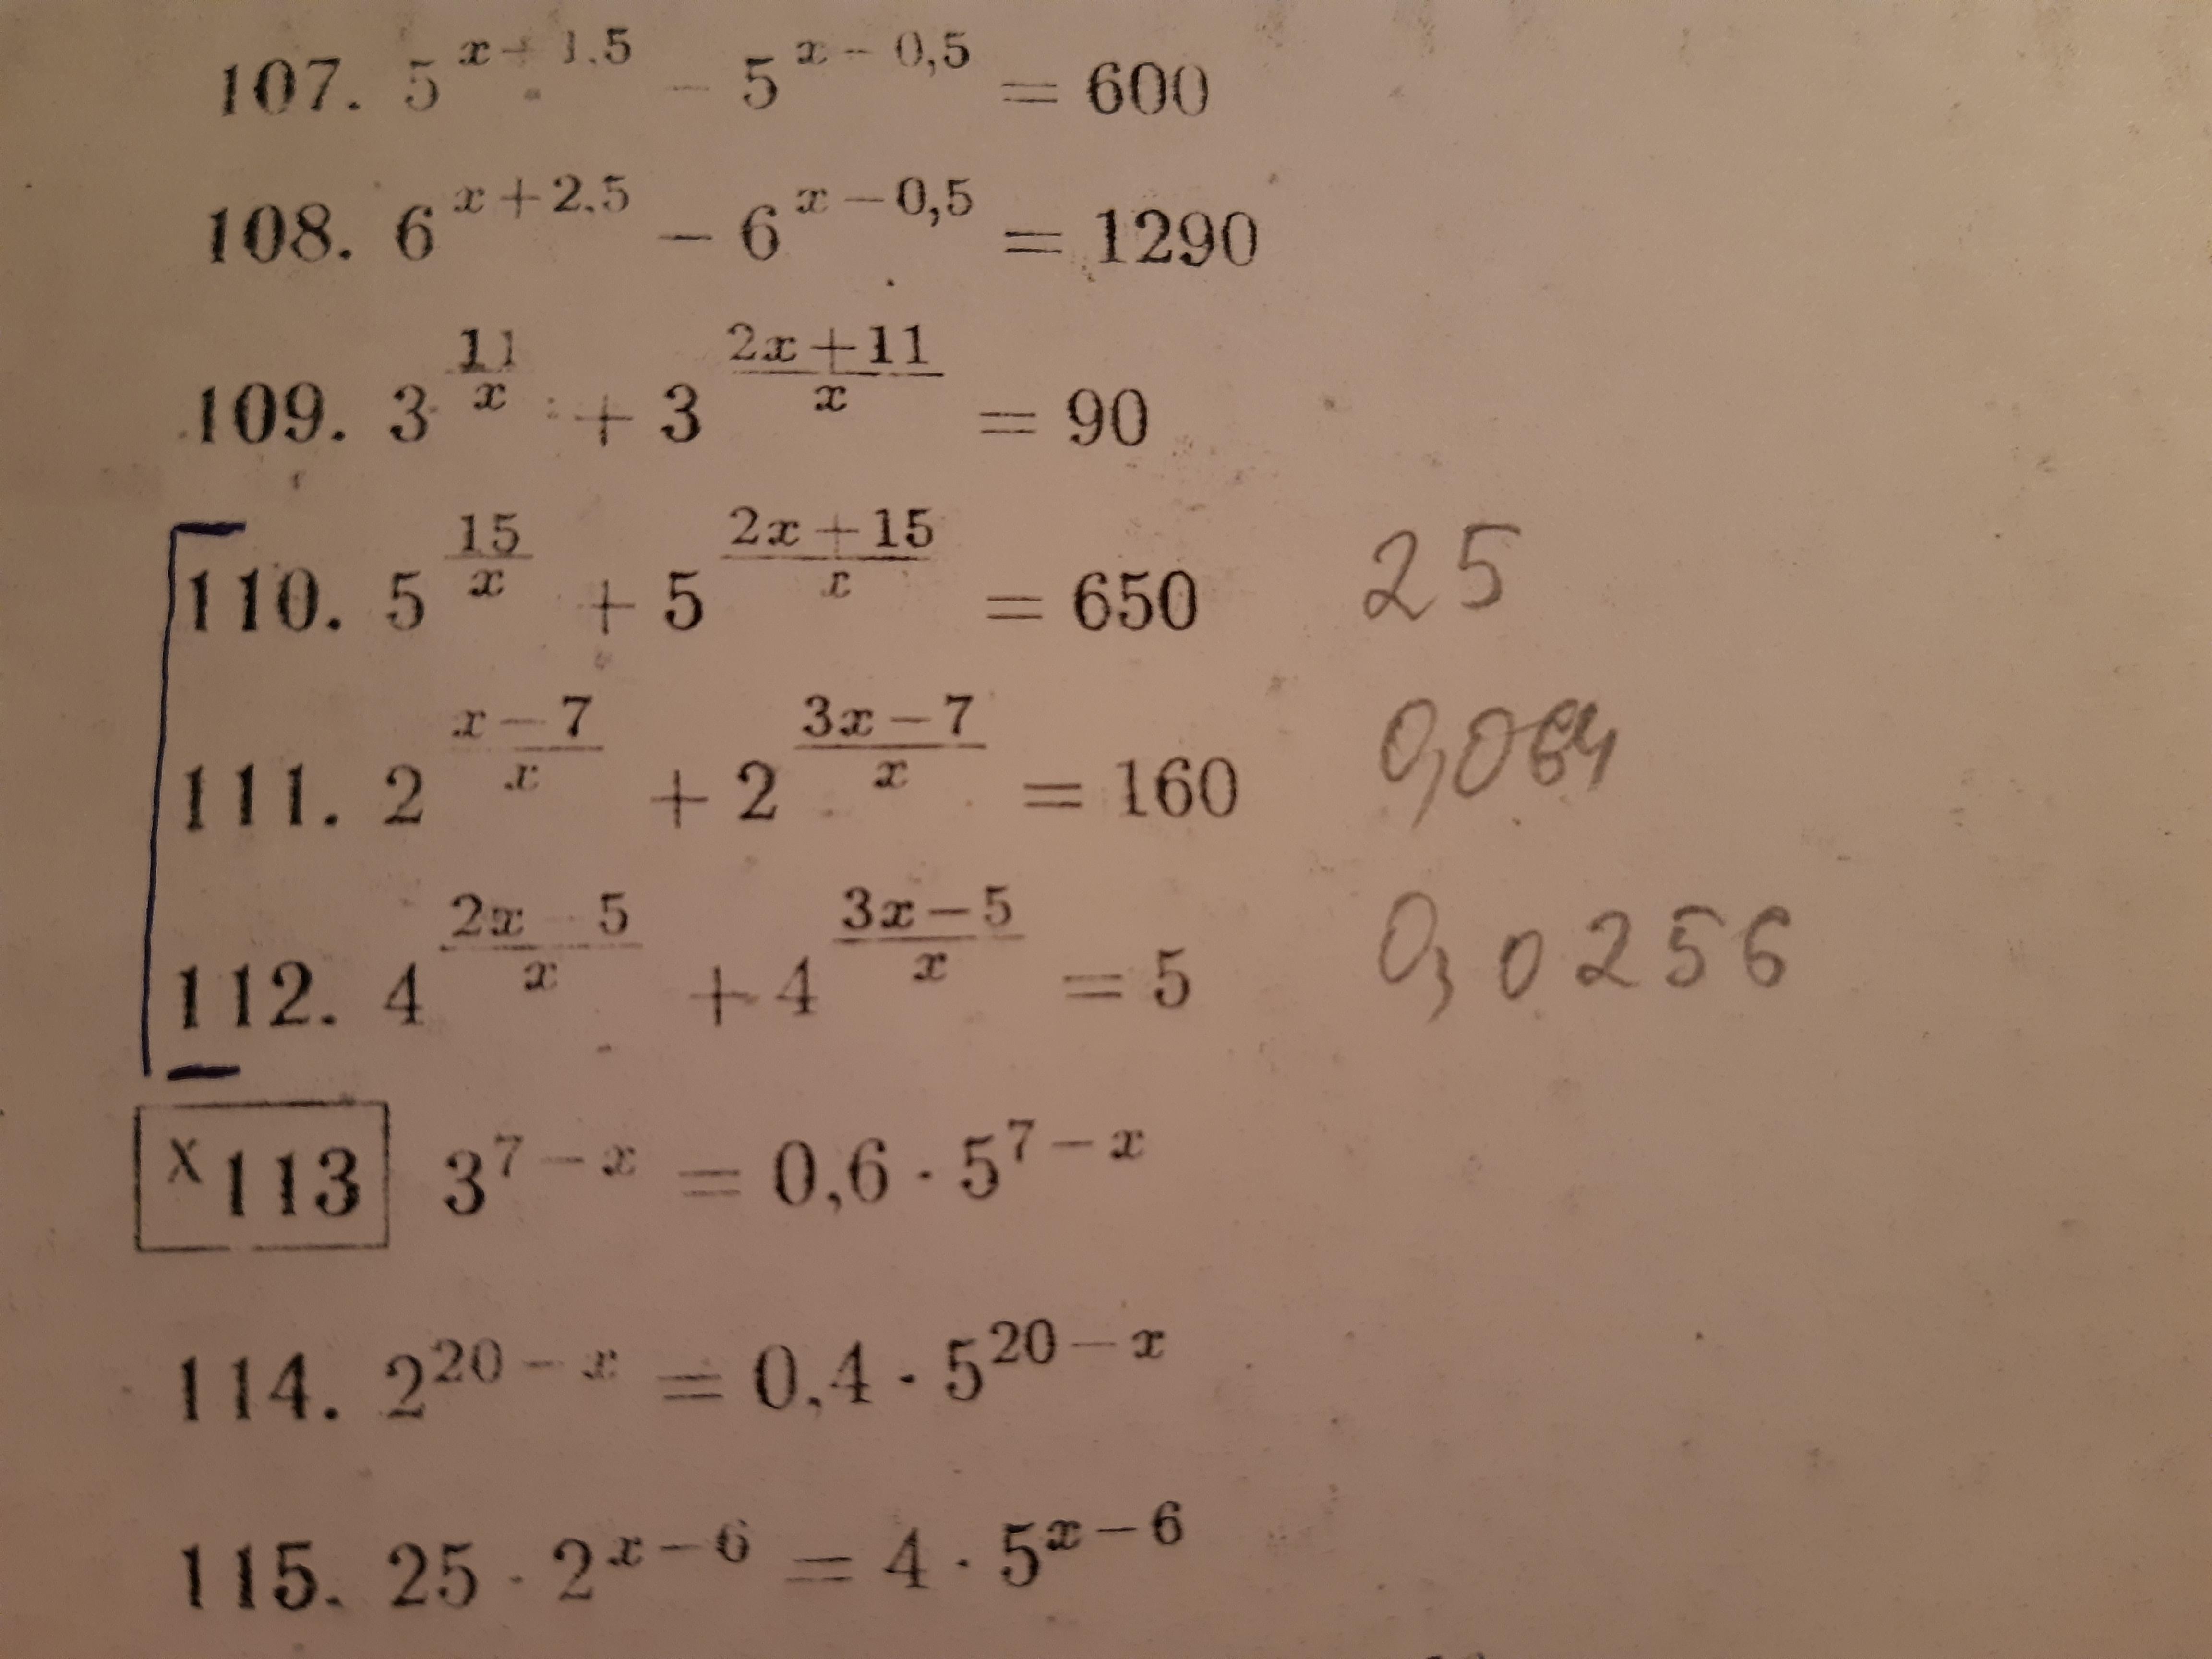 107. 5^{x+1.5} − 5^{x−0,5} = 600
108. 6^{x+2.5} − 6^{x−0,5} = 1290
109. 3^{\frac{11}{x}} + 3^{\frac{2x+11}{x}} = 90
110. 5^{\frac{15}{x}} + 5^{\frac{2x+15}{x}} = 650 25
111. 2^{\frac{x−7}{x}} + 2^{\frac{3x−7}{x}} = 160 0,064
112. 4^{\frac{2x−5}{x}} + 4^{\frac{3x−5}{x}} = 5 0,0256
x 113 3^{7−x} = 0,6 · 5^{7−x}
114. 2^{20−x} = 0,4 · 5^{20−x}
115. 25 · 2^{x−6} = 4 · 5^{x−6}